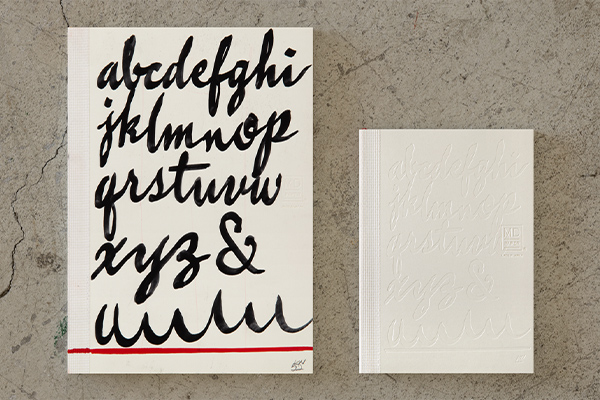 abcdefghi
jklmnop
qrstuvw
xyz &
abcdefghi
jklmnop
qrstuvw
xyz &
MD